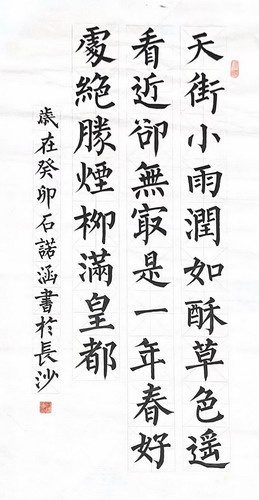 天街小雨潤如酥草色遥
看近卻無㝡是一年春好
處絶勝煙栁滿皇都
歲在癸卯石諾涵書於長沙